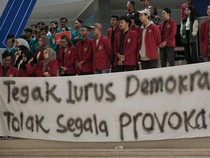 Tegak lurus Demokra
Tolak segala PROVOKA